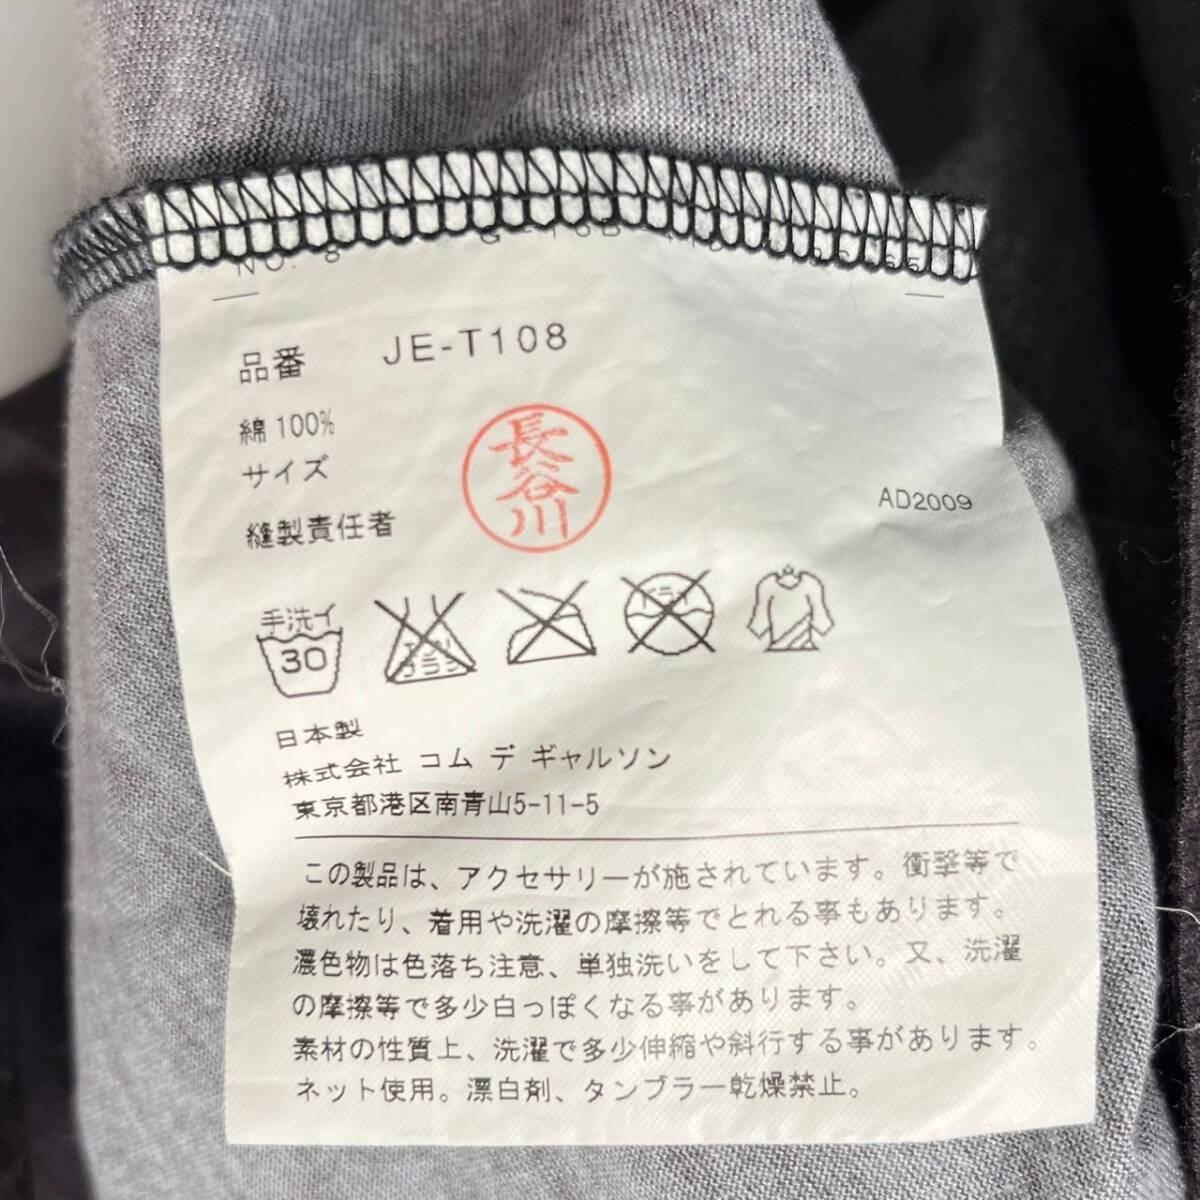 品番 JE-T108
綿100%
サイズ
縫製責任者
長谷川
AD2009
手洗イ
30
エンソ
サラシ
ドライ
日本製
株式会社 コム デ ギャルソン
東京都港区南青山5-11-5
この製品は、アクセサリーが施されています。衝撃等で
壊れたり、着用や洗濯の摩擦等でとれる事もあります。
濃色物は色落ち注意、単独洗いをして下さい。又、洗濯
の摩擦等で多少白っぽくなる事があります。
素材の性質上、洗濯で多少伸縮や斜行する事があります。
ネット使用。漂白剤、タンブラー乾燥禁止。